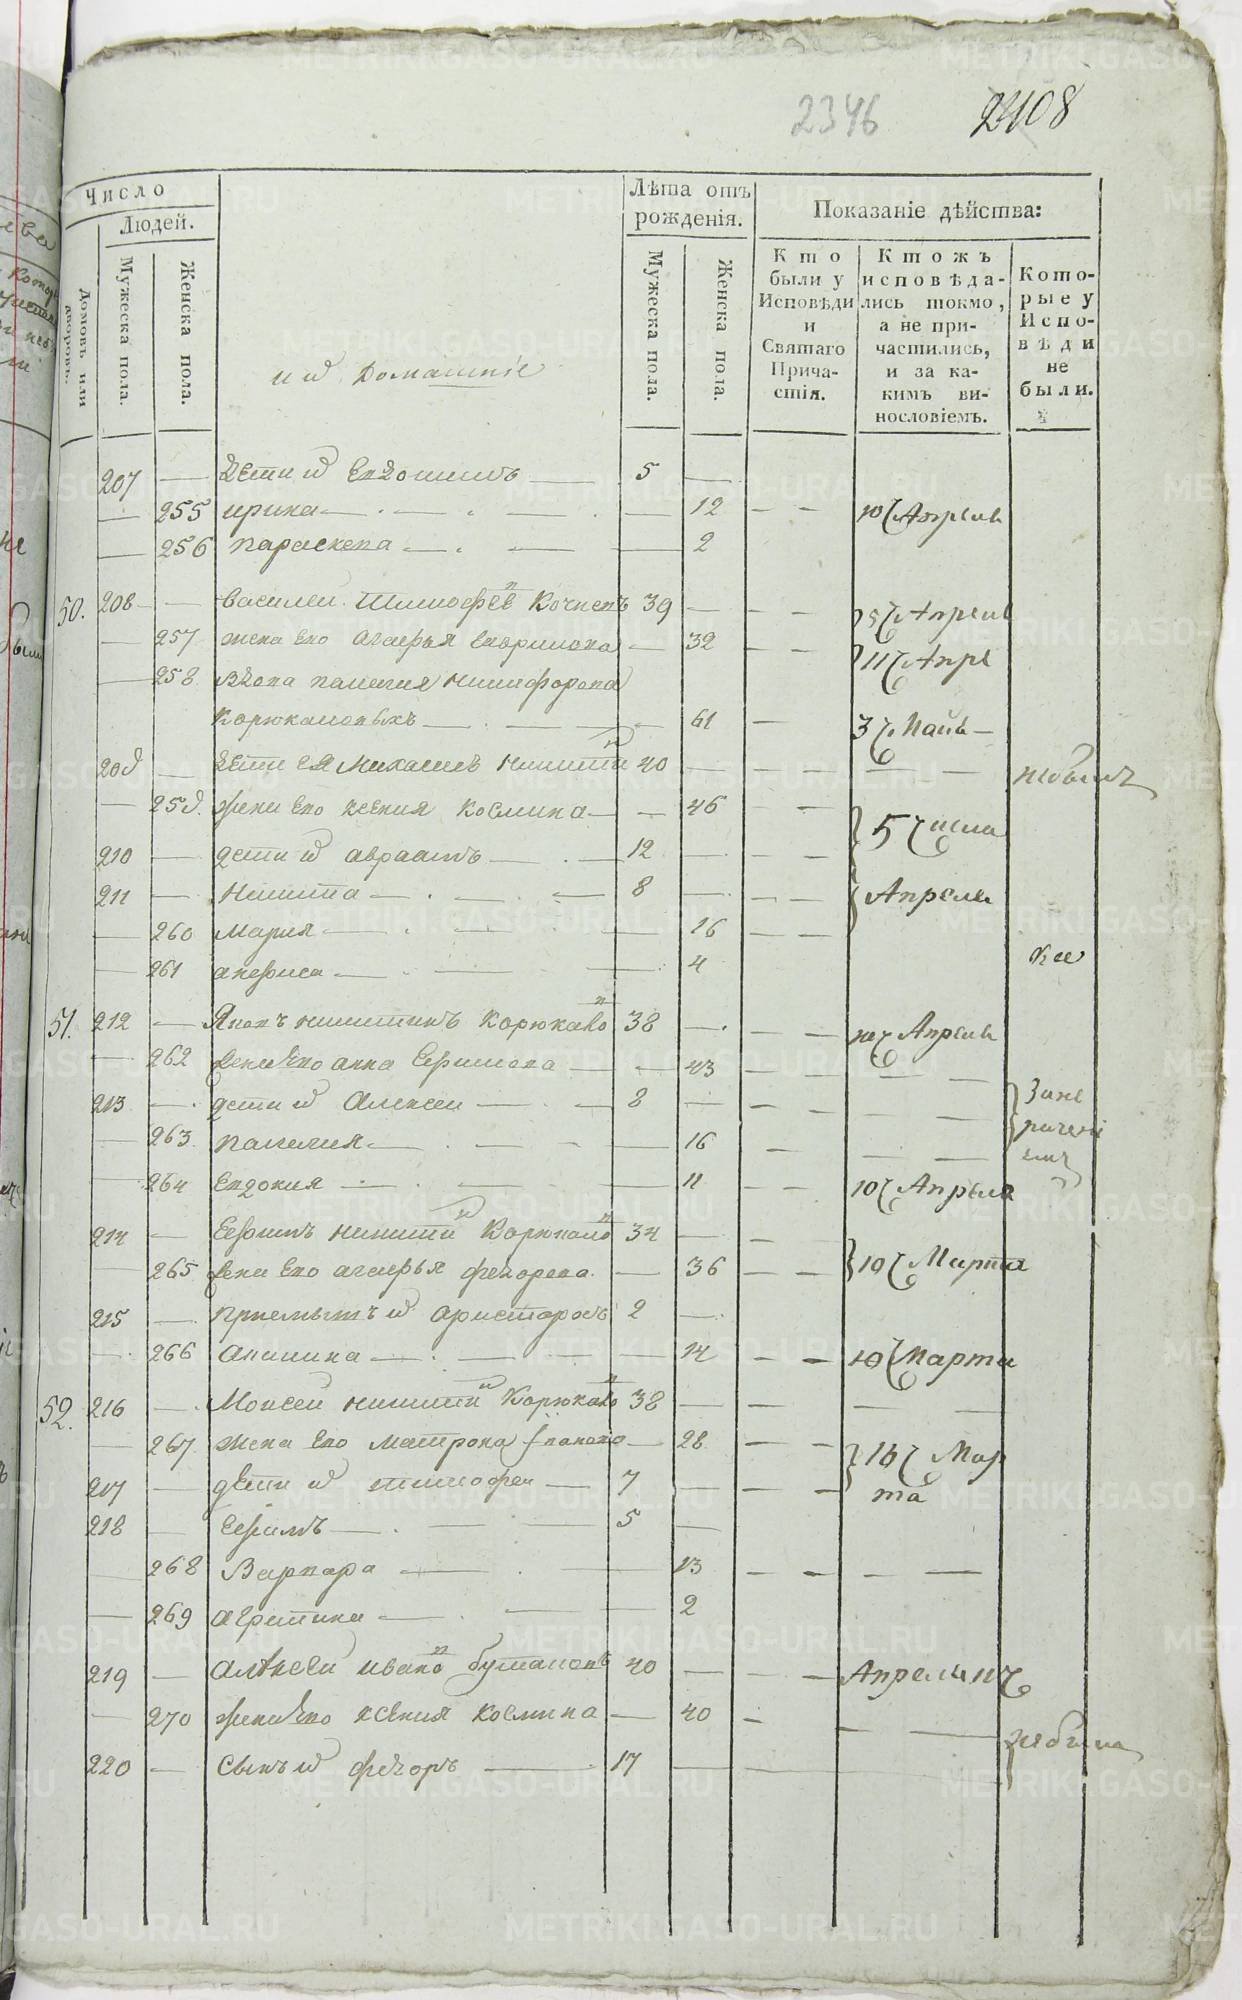 2346 2408
Число
Людей.
Домовъ или дворовъ.
Мужеска пола.
Женска пола.
и ихъ Домашніе
Лѣта отъ рожденія.
Мужеска пола.
Женска пола.
Показаніе дѣйства:
Кто были у Исповѣди и Святаго Причастія.
Ктожъ исповѣдались токмо, а не причастились, и за какимъ винословіемъ.
Которые у Исповѣди не были.
207 — Дети их Евдокимъ — 5 —
— 255 ирина — 12 — — 10 Апреля
— 256 параскева — 2
50. 208 — василеи Тимофеев Кочневъ 39 — — 5 Апреля
— 257 жена ево агафья гаврилова — 32 — — 11 Апре
— 258 вдова пелагия никифорова
Корюкаловыхъ — 61 — 3 Маия —
209 — Дети ея Михаилъ никити 40 — — — небылъ
— 259 жена ево ксения космина — 46 — — 5 числа
210 — дети их авраамъ — 12 — — —
211 — никита — 8 — — — Апреля
— 260 Мария — 16 — —
— 261 анфиса — 4
51. 212 — Яковъ никитинъ Корюкало 38 — — — 10 Апреля
— 262 жена ево анна Ефимова — 43 — — —
213 — дети их Алексеи — 8 — — —
— 263 пелагия — 16 — — —
— 264 Евдокия — 11 — — 10 Апреля
214 — Ефимъ никити Корюкало 34 — —
— 265 жена ево агафья федорова — 36 — — 10 Марта
215 — приемышъ их аристархъ 2 —
— 266 акилина — 14 — — 10 Марта
52. 216 — Моисеи никити Корюкало 38 — — —
— 267 жена ево матрона Іванова — 28 — — 16 Мар
217 — дети их тимофеи — 7 — — — та
218 — Ефимъ — 5 —
— 268 Варвара — 13 — — — —
— 269 агрипина — 2
219 — алексеи ивано бутаковъ 40 — — — Апреля
— 270 жена ево ксения космина — 40 —
220 — сынъ их федоръ — 17 —
METRIKI.GASO-URAL.RU